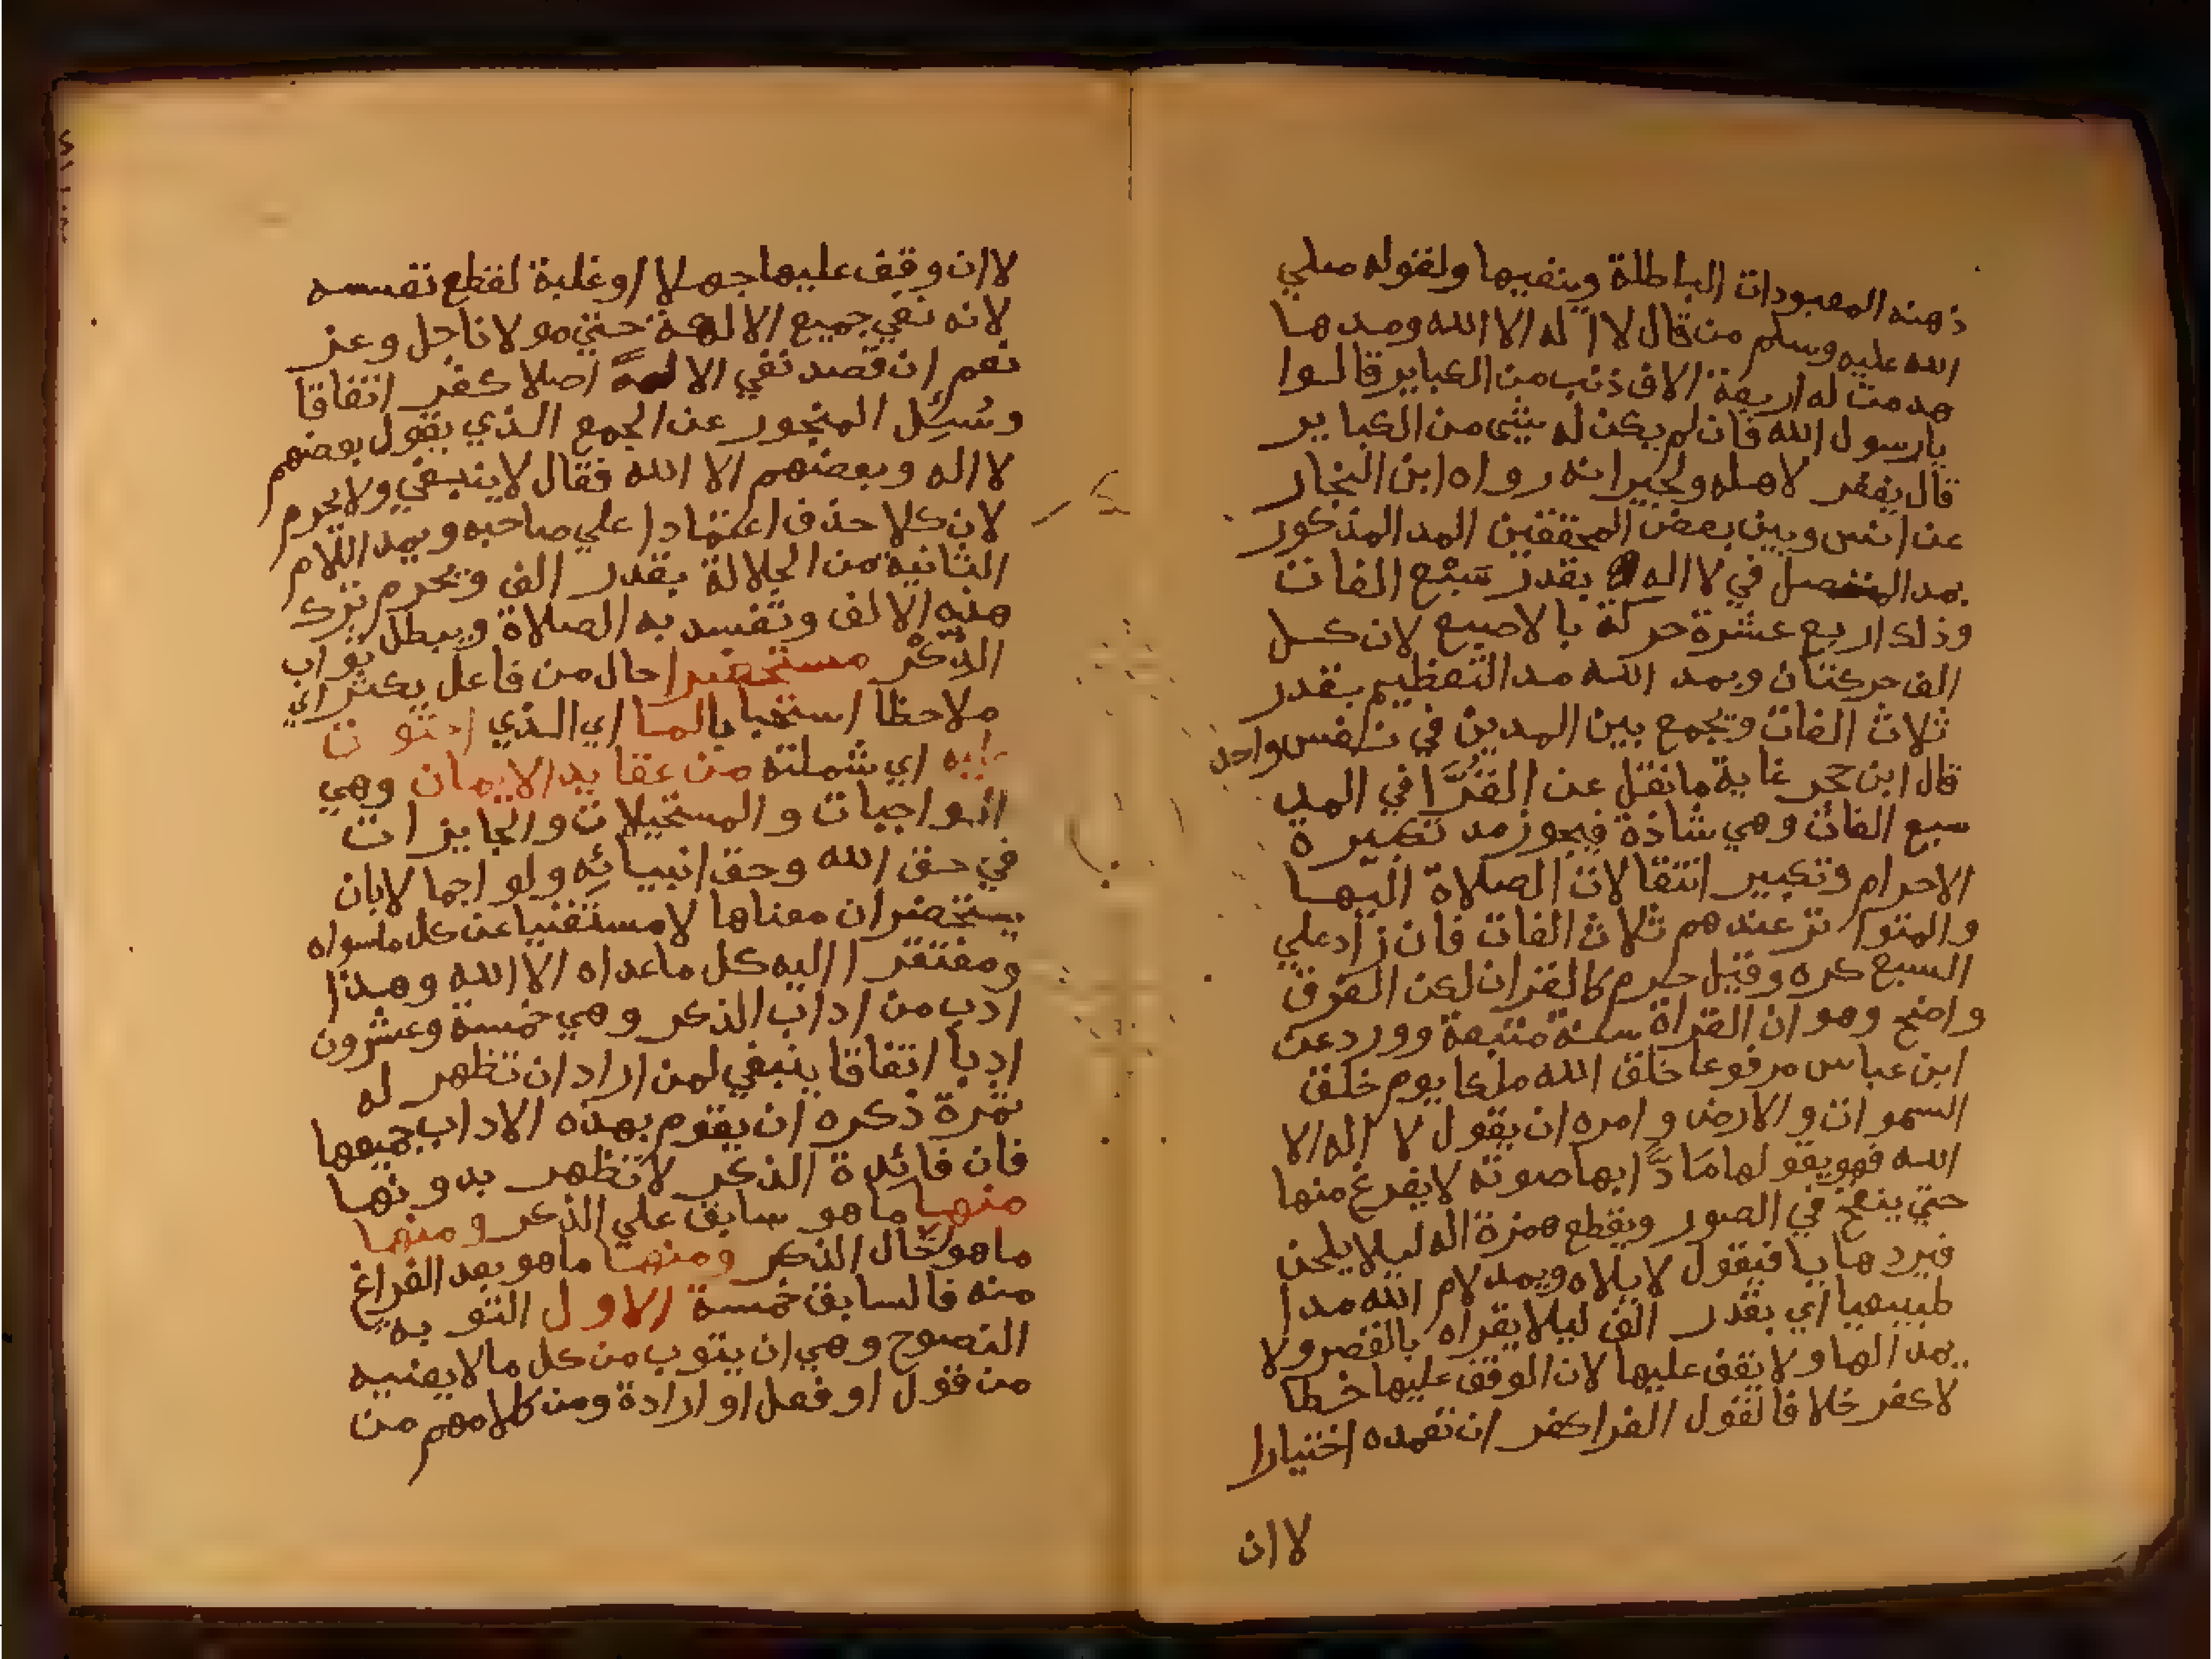 ذهنه المعبودات الباطلة وينفيها ولقوله صلي
الله عليه وسلم من قال لا اله الا الله ومدها
هدمت له اربعة الاف ذنب من الكباير قالوا
يارسول الله فان لم يكن له شئ من الكباير
قال يغفر لاهله ولجيرانه رواه ابن النجار
عن انس وبين بعض المحققين المد المذكور
بمد المنفصل في لا اله بقدر سَبْع الفات
وذلك اربع عشرة حركة بالاصبع لان كل
الف حركتان وبمد الله مد التعظيم بقدر
ثلاث الفات ويجمع بين المدين في نفس واحد
قال ابن حجر غاية ما نقل عن القُرَّا في المد
سبع الفات وهي شاذة فيجوز مد تكبيرة
الاحرام وتكبير انتقالات الصلاة اليها
والمتواتر عندهم ثلاث الفات فان زاد علي
السبع كره وقيل حرم كالقران لكن الفرق
واضح وهو ان القراة سنة متبعة وورد عن
ابن عباس مرفوعا خلق الله ملكا يوم خلق
السموات والارض وامره ان يقول لا اله الا
الله فهو يقولها مَادًّا بها صوته لا يفرغ منها
حتي ينفخ في الصور ويقطع همزة اله ليلا يلحن
فيردها يا فيقول لا يلاه ويمد لام الله مدا
طبيعيا اي بقدر الف ليلا يقراه بالقصر ولا
يمد الها ولا يقف عليها لان الوقف عليها خطا
لا كفر خلافا لقول الفرا كفر ان تعمده اختيارا
لا ان
لا ان وقف عليها جهلا او غلبة لقطع نفسه
لانه نفي جميع الالهة حتي مولانا جل وعز
نعم ان قصد نفي الالهة اصلا كفر اتفاقا
وسُئِل المنجور عن الجمع الذي يقول بعضهم
لا اله وبعضهم الا الله فقال لا ينبغي ولا يحرم
لان كلا حذف اعتمادا علي صاحبه ويمد اللام
الثانية من الجلالة بقدر الف ويحرم ترك
هذه الالف وتفسد به الصلاة ويبطل ثواب
الذكر مستحضرا حال من فاعل يكثر اي
ملاحظا استحبابا لما اي الذي احتوت
عليه اي شملته من عقايد الايمان وهي
الواجبات والمستحيلات والجايزات
في حق الله وحق انبيائه ولو اجمالا بان
يستحضر ان معناها لا مستغنيا عن كل ما سواه
ومفتقرا اليه كل ما عداه الا الله وهذا
ادب من اداب الذكر وهي خمسة وعشرون
ادبا اتفاقا ينبغي لمن اراد ان تظهر له
ثمرة ذكره ان يقوم بهذه الاداب جميعها
فان فائدة الذكر لا تظهر بدونها
منها ما هو سابق علي الذكر ومنها
ما هو حال الذكر ومنها ما هو بعد الفراغ
منه فالسابق خمسة الاول التوبه
النصوح وهي ان يتوب من كل ما لا يعنيه
من قول او فعل او ارادة ومن كلامهم من